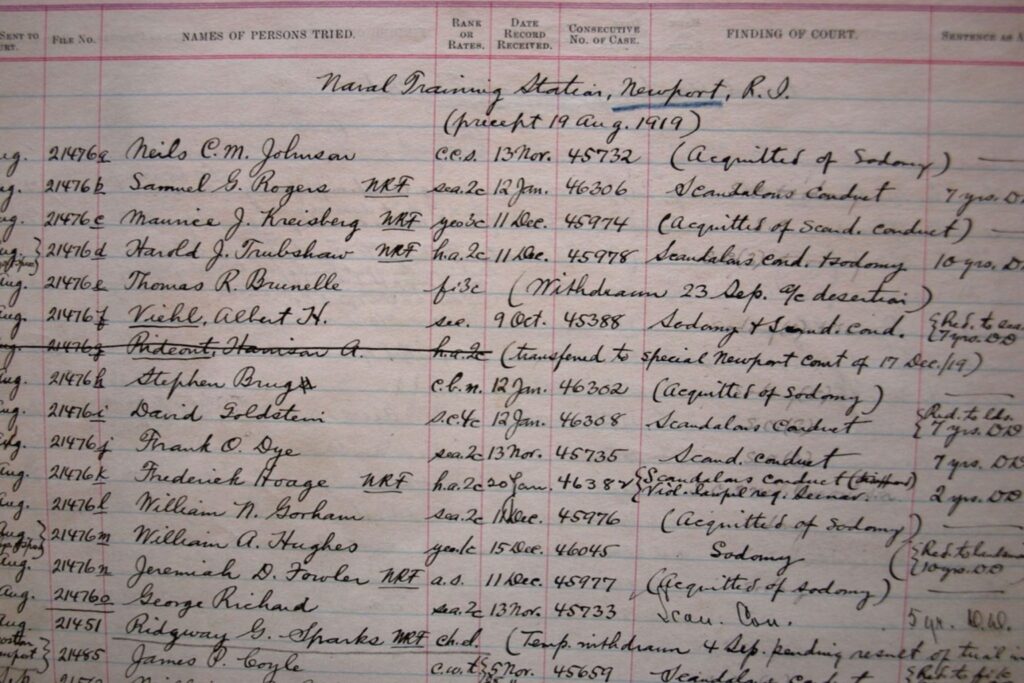 SENT TO
URT.
FILE NO.
NAMES OF PERSONS TRIED.
RANK OR RATES.
DATE RECORD RECEIVED.
CONSECUTIVE NO. OF CASE.
FINDING OF COURT.
SENTENCE AS A
Naval Training Station, Newport, R.I.
(precept 19 Aug. 1919)
ug. 21476a Neils C.M. Johnson c.c.s. 13 Nov. 45732 (Acquitted of Sodomy) —
ug. 21476b Samuel G. Rogers NRF sea.2c 12 Jan. 46306 Scandalous Conduct 7 yrs. D
ug. 21476c Maurice J. Kreisberg NRF yeo3c 11 Dec. 45974 (Acquitted of Scand. conduct) —
ug. 21476d Harold J. Trubshaw NRF h.a.2c 11 Dec. 45978 Scandalous cond. & sodomy 10 yrs. D
ug. 21476e Thomas R. Brunelle fi3c (Withdrawn 23 Sep. a/c desertion)
ug. 21476f Viehl, Albert H. sec. 9 Oct. 45388 Sodomy & Scand. cond. {Red. to sea 7 yrs. DD
g. 21476g Rideout, Harrison A. h.a.2c (transferred to special Newport court of 17 Dec./19)
ug. 21476h Stephen Brug c.b.m. 12 Jan. 46302 (Acquitted of Sodomy) —
ug. 21476i David Goldstein s.c.4c 12 Jan. 46308 Scandalous Conduct {Red. to lds. 7 yrs. DD
g. 21476j Frank O. Dye sea.2c 13 Nov. 45735 Scand. conduct 7 yrs. DD
Aug. 21476k Frederick Hoage NRF h.a.2c 20 Jan. {Scandalous Conduct 2 yrs. DD
Aug. 21476l William N. Gorham sea.2c Dec. 45976 (Acquitted of Sodomy) —
Aug. 21476m William A. Hughes yeo.1c 15 Dec. 46045 Sodomy {Red. to 10 yrs. DD
Aug. 21476n Jeremiah D. Fowler NRF a.s. 11 Dec. 45977 (Acquitted of sodomy) —
Aug. 21476o George Richard sea.2c 13 Nov. 45733 Scan. Con. 5 yr. D.D.
Aug. 21451 Ridgway G. Sparks NRF ch.d. (Temp. withdrawn 4 Sep. pending result of trial in
21485 James P. Coyle c.w.t. 5 Nov. 45659 Scandalous {Red. to